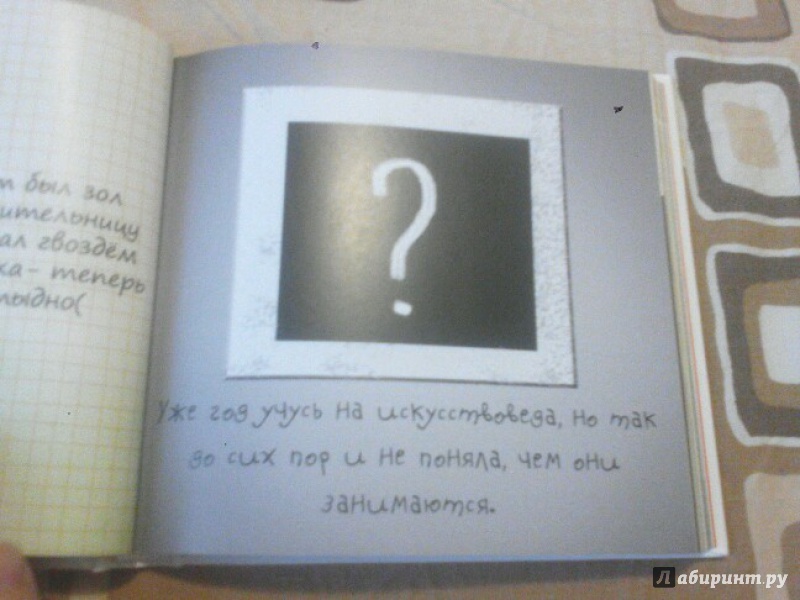 т был зол
ительницу
ал гвоздём
ка- теперь
тыдно(
?
Уже год учусь на искусствоведа, но так
до сих пор и не поняла, чем они
занимаются.
Лабиринт.ру